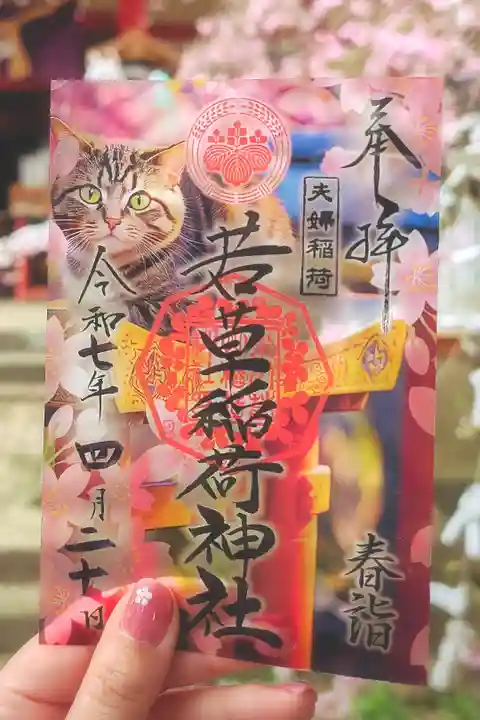 奉拝
夫婦稲荷
若草稲荷神社
春詣
令和七年
四月二十日